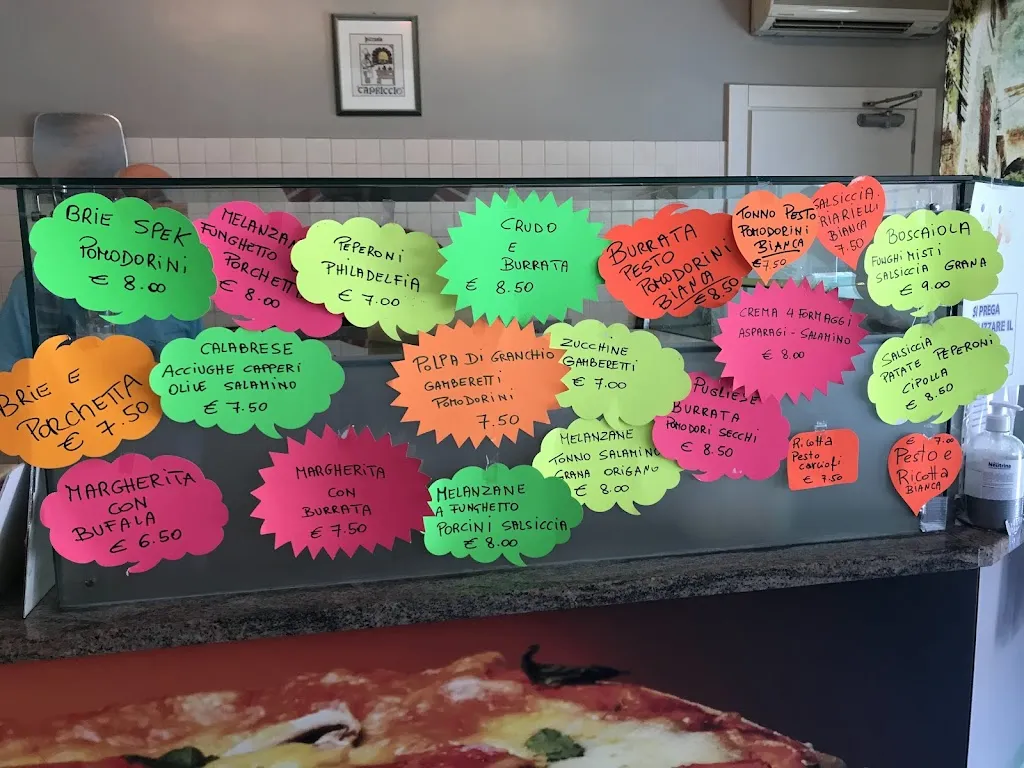 CAPRICCIO
BRIE SPEK
POMODORINI
€ 8.00
MELANZAN
FUNGHETTO
PORCHETT
€ 8.00
PEPERONI
PHILADELFIA
€ 7.00
CRUDO
E
BURRATA
€ 8.50
BURRATA
PESTO
POMODORINI
BIANCA
€ 8.50
TONNO PESTO
POMODORINI
BIANCA
€ 7.50
SALSICCIA.
RIARIELLI
BIANCA
7.50
BOSCAIOLA
FUNGHI MISTI
SALSICCIA GRANA
€ 9.00
SI PREGA
IL
BRIE E
PORCHETTA
€ 7.50
CALABRESE
ACCIUGHE CAPPERI
OLIVE SALAMINO
€ 7.50
POLPA DI GRANCHIO
GAMBERETTI
POMODORINI
7.50
ZUCCHINE
GAMBERETTI
€ 7.00
CREMA 4 FORMAGGI
ASPARAGI - SALAMINO
€ 8.00
SALSICCIA
PATATE PEPERONI
CIPOLLA
€ 8.50
PUGLIESE
BURRATA
POMODORI SECCHI
€ 8.50
MARGHERITA
CON
BUFALA
€ 6.50
MARGHERITA
CON
BURRATA
€ 7.50
MELANZANE
A FUNGHETTO
PORCINI SALSICCIA
€ 8.00
MELANZANE
TONNO SALAMINO
GRANA ORIGANO
€ 8.00
Ricotta
Pesto
carciofi
€ 7.50
€ 7.00
Pesto e
Ricotta
BIANCA
Neutro